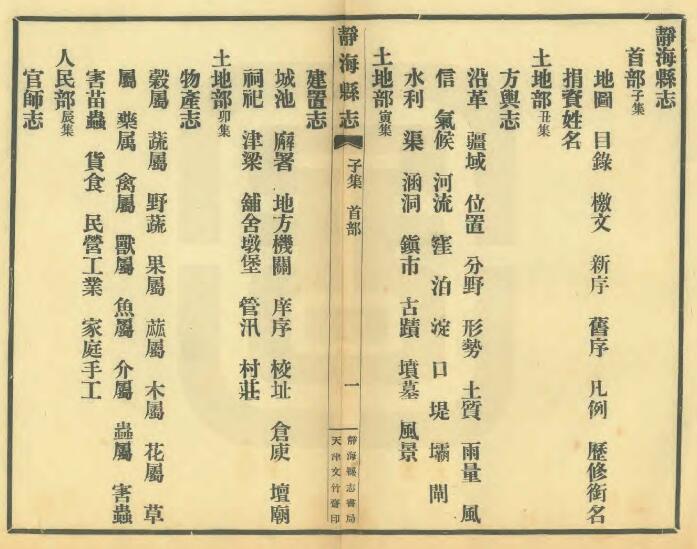 靜海縣志
首部子集
地圖 目錄 檄文 新序 舊序 凡例 歷修銜名
捐資姓名
土地部丑集
方輿志
沿革 疆域 位置 分野 形勢 土質 雨量 風
信 氣候 河流 窪 泊 淀 口 堤 壩 閘
水利 渠 涵洞 鎭市 古蹟 墳墓 風景
土地部寅集
靜海縣志
子集 首部
一
靜海縣志書局
天津文竹齋印
建置志
城池 廨署 地方機關 庠序 校址 倉庾 壇廟
祠祀 津梁 舖舍墩堡 管汛 村莊
土地部卯集
物產志
穀屬 蔬屬 野蔬 果屬 蓏屬 木屬 花屬 草
屬 藥属 禽屬 獸屬 魚屬 介屬 蟲屬 害蟲
害苗蟲 貨食 民營工業 家庭手工
人民部辰集
官師志